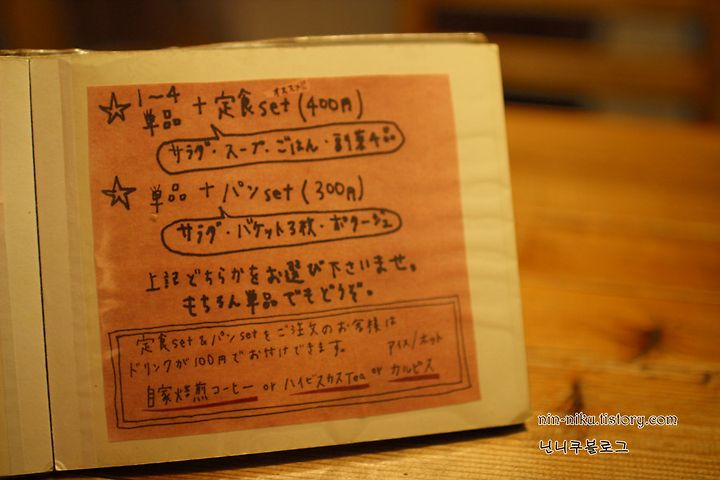 オススメ
☆ 1～4
単品 + 定食set (400円)
サラダ・スープ・ごはん・副菜4品
☆ 単品 + パンset (300円)
サラダ・バケット3枚・ポタージュ
上記どちらかをお選び下さいませ。
もちろん単品でもどうぞ。
定食set & パンsetをご注文のお客様は
ドリンクが100円でお付けできます。 アイス/ホット
自家焙煎コーヒー or ハイビスカスTea or カルピス
nin-niku.tistory.com
닌니쿠블로그